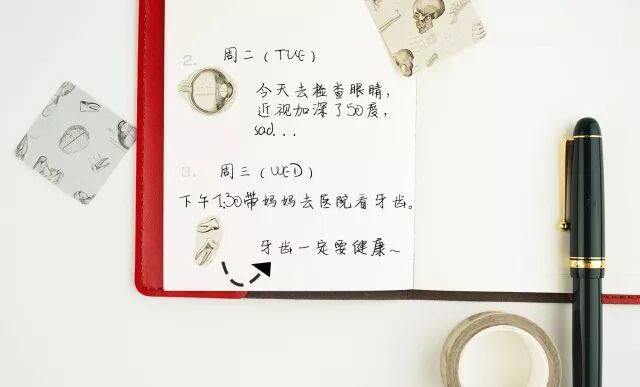 2. 周二（TUE）
今天去检查眼睛，
近视加深了50度，
sad...
3. 周三（WED）
下午1:30带妈妈去医院看牙齿。
牙齿一定要健康～